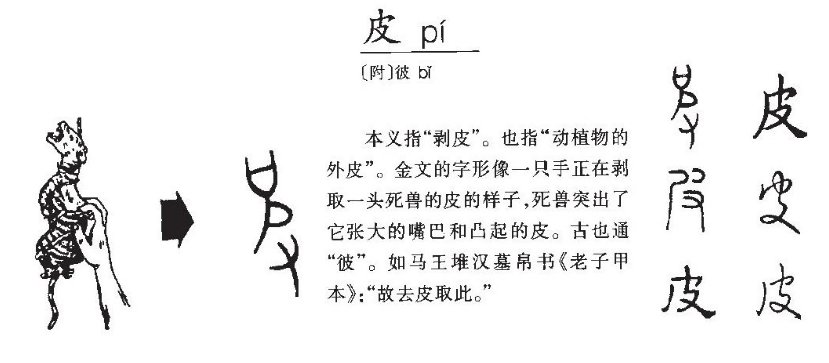 皮 pí
〔附〕彼 bǐ
本义指“剥皮”。也指“动植物的
外皮”。金文的字形像一只手正在剥
取一头死兽的皮的样子,死兽突出了
它张大的嘴巴和凸起的皮。古也通
“彼”。如马王堆汉墓帛书《老子甲
本》:“故去皮取此。”
皮
皮
皮
皮
皮
皮
皮